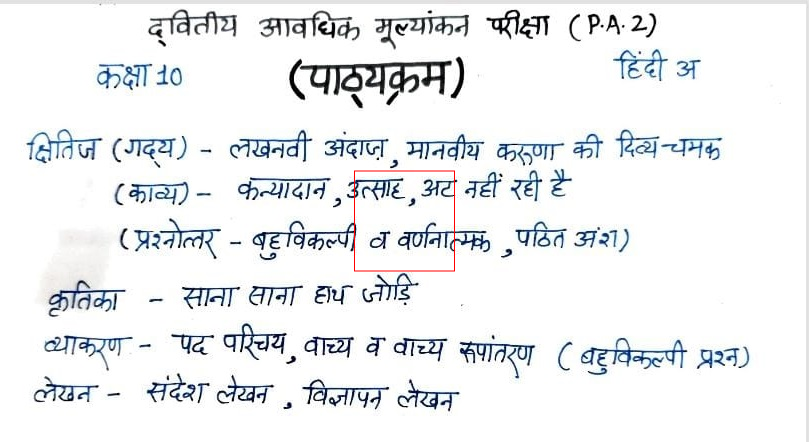 द्वितीय आवधिक मूल्यांकन परीक्षा (P.A.2)
कक्षा 10 (पाठ्यक्रम) हिंदी अ
क्षितिज (गद्य) - लखनवी अंदाज़, मानवीय करुणा की दिव्य चमक
(काव्य) - कन्यादान, उत्साह, अट नहीं रही है
(प्रश्नोत्तर - बहुविकल्पी व वर्णनात्मक, पठित अंश)
कृतिका - साना साना हाथ जोड़ि
व्याकरण - पद परिचय, वाच्य व वाच्य रूपांतरण (बहुविकल्पी प्रश्न)
लेखन - संदेश लेखन, विज्ञापन लेखन